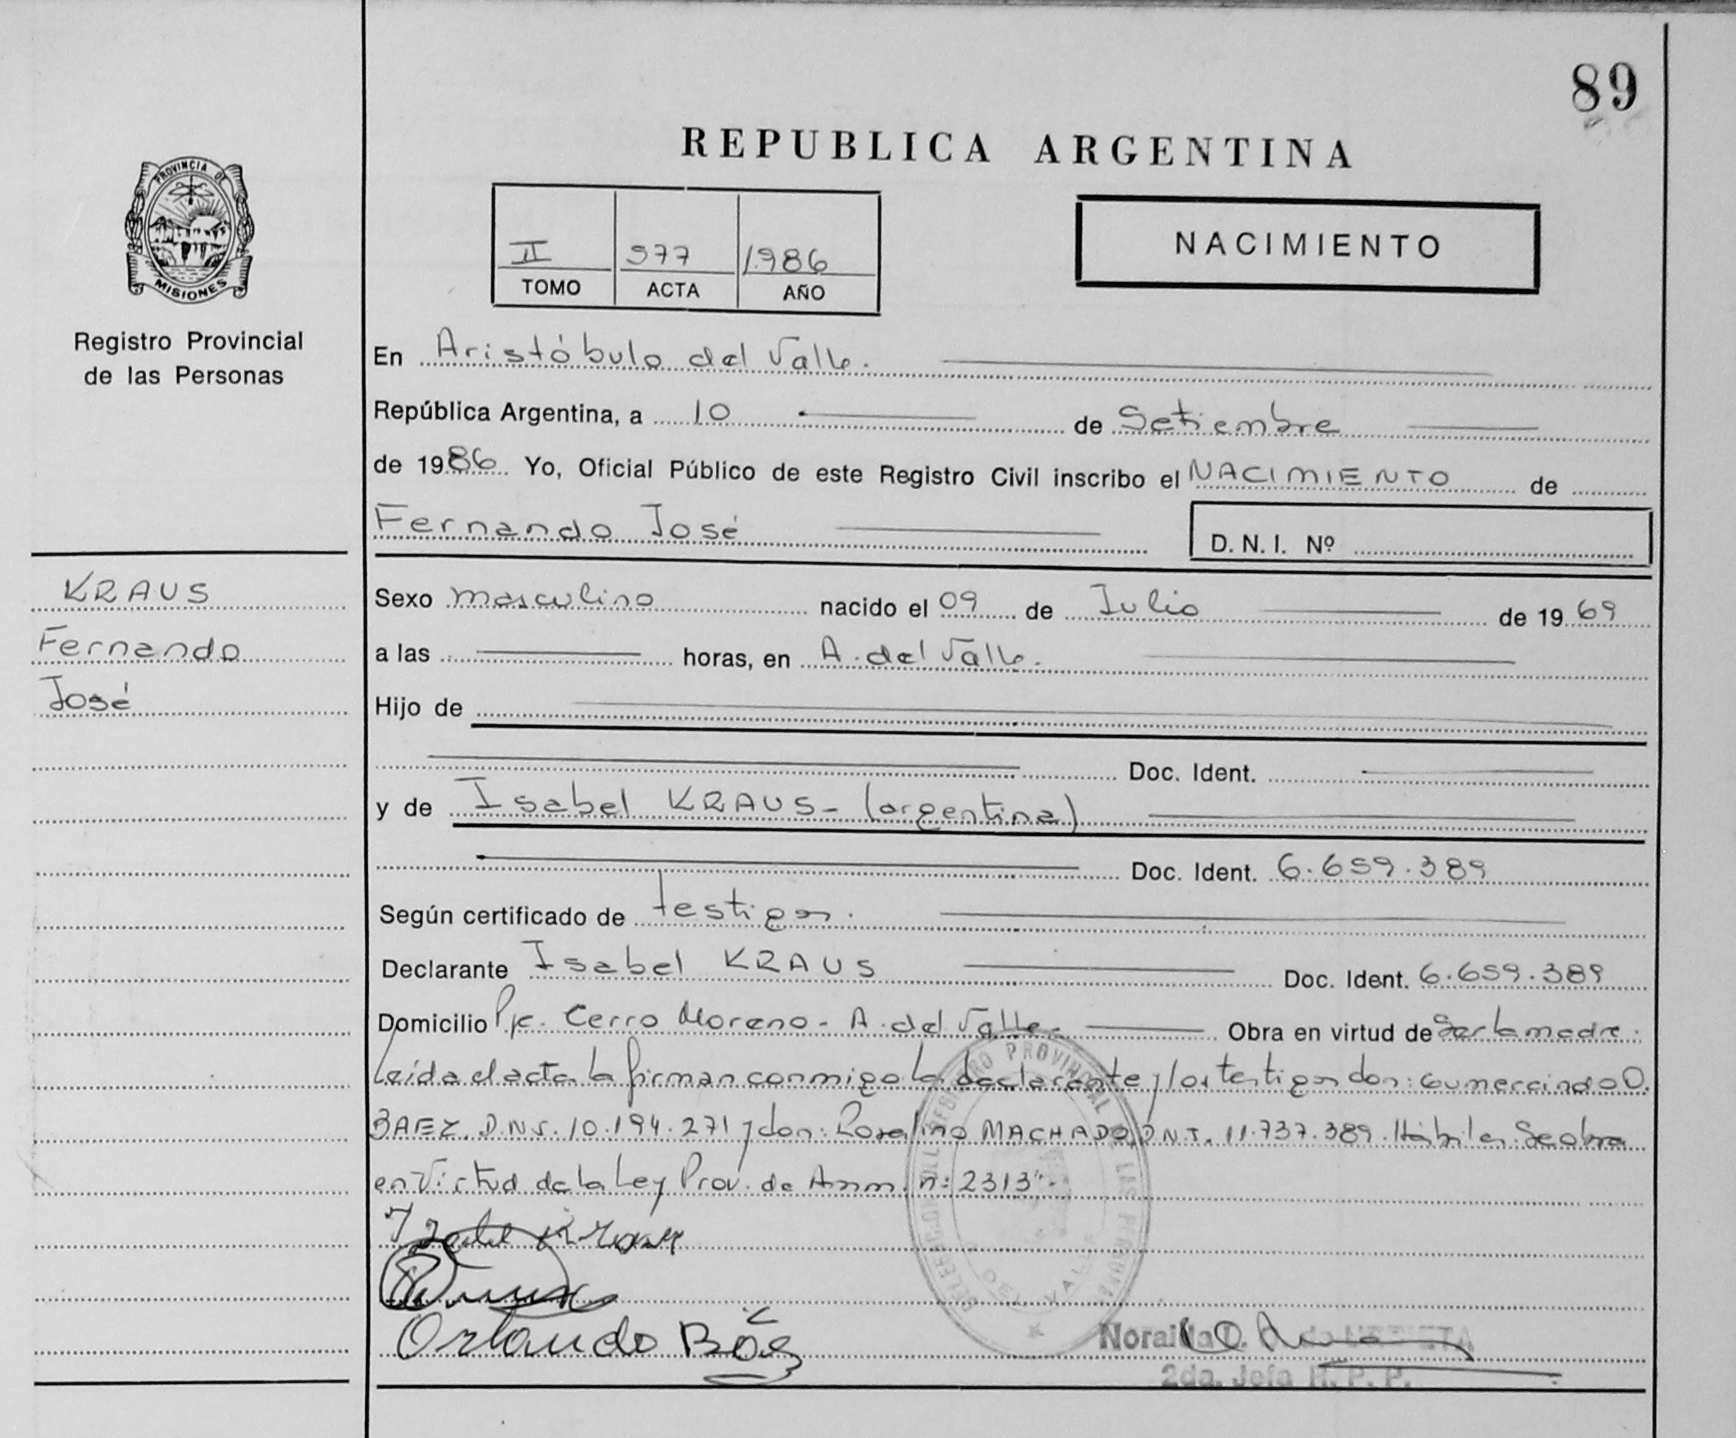 89
REPUBLICA ARGENTINA
PROVINCIA DE
MISIONES
Registro Provincial
de las Personas
II 977 1986
TOMO ACTA AÑO
NACIMIENTO
En Aristóbulo del Valle.
República Argentina, a 10 de Setiembre
de 1986 Yo, Oficial Público de este Registro Civil inscribo el NACIMIENTO de
Fernando José
D. N. I. Nº
KRAUS
Fernando
José
Sexo masculino nacido el 09 de Julio de 1969
a las horas, en A. del Valle.
Hijo de
Doc. Ident.
y de Isabel KRAUS- (argentina)
Doc. Ident. 6.659.389
Según certificado de testigos.
Declarante Isabel KRAUS Doc. Ident. 6.659.389
Domicilio Pje. Cerro Moreno- A. del Valle- Obra en virtud de Ser la madre.
Leída el acta la firman conmigo la declarante y los testigos don: Gumercindo O.
BAEZ. D.N.I. 10.194.271 y don: Rosalino MACHADO, D.N.I. 11.737.389. Hábiles. Se obra
en Virtud de la Ley Prov. de Amn. n: 2313".
Isabel Kraus
Orlando Báez
DELEGACION DEL REGISTRO PROVINCIAL DE LAS PERSONAS
DEL VALLE
Noraida D.
2da. Jefa R. P. P.